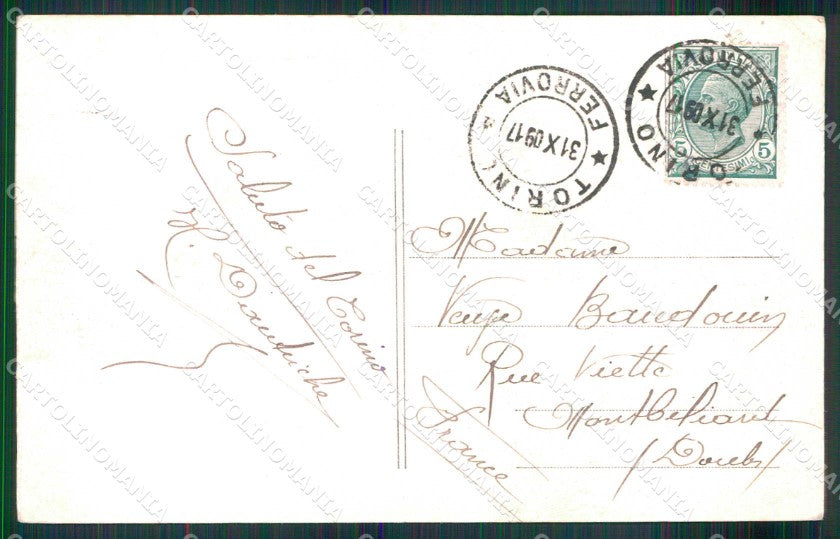 Saluto del Torino
TORINO
FERROVIA
31 X 09 17
TORINO
FERROVIA
31 X 09 17
5
CENTESIMI
5
Madame
Baudouin
Rue Viette
Montbéliard
(Doubs)
France
CARTOLINOMANIA